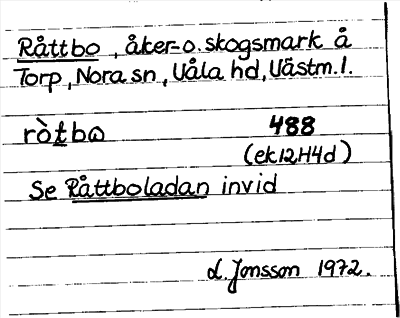 Råttbo, åker- o. skogsmark å
Torp, Nora sn, Våla hd, Västm. l.
ròt̲bo 488
(ek 12H4d)
Se Råttboladan invid
L. Jonsson 1972.